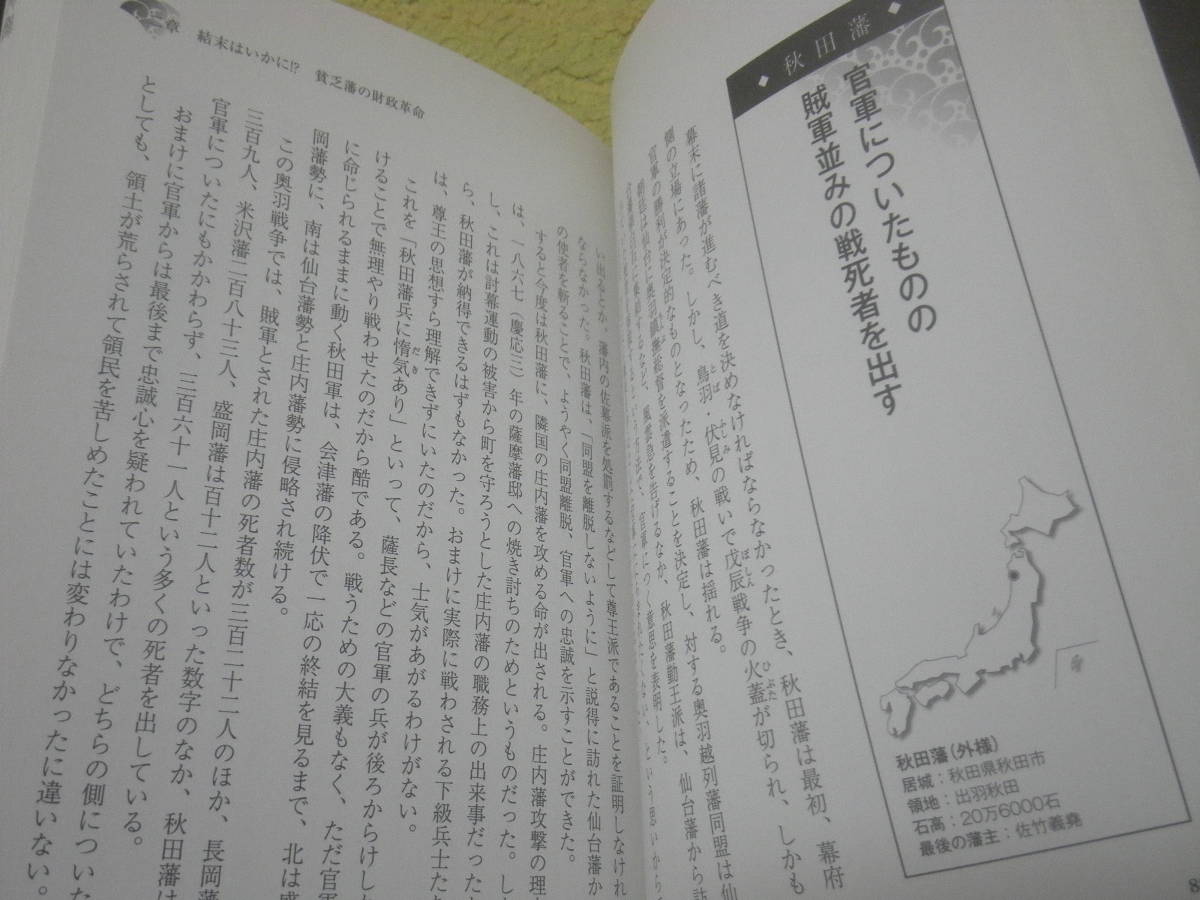 秋田藩
官軍についたものの
賊軍並みの戦死者を出す
秋田藩(外様)
居城:秋田県秋田市
領地:出羽秋田
石高:20万6000石
最後の藩主:佐竹義堯
幕末に諸藩が進むべき道を決めなければならなかったとき、秋田藩は最初、幕府
側の立場にあった。しかし、鳥羽・伏見の戦いで戊辰戦争の火蓋が切られ、しかも
官軍の勝利が決定的なものとなったため、秋田藩は揺れる。
朝廷は仙台に奥羽鎮撫総督を派遣することを決定し、対する奥羽越列藩同盟は仙
い出るとか、藩内の佐幕派を処罰するなどして尊王派であることを証明しなけれ
ならなかった。秋田藩は、「同盟を離脱しないように」と説得に訪れた仙台藩か
の使者を斬ることで、ようやく同盟離脱、官軍への忠誠を示すことができた。
すると今度は秋田藩に、隣国の庄内藩を攻める命が出される。庄内藩攻撃の理
は、一八六七(慶応三)年の薩摩藩邸への焼き討ちのためというものだった。し
し、これは討幕運動の被害から町を守ろうとした庄内藩の職務上の出来事だった
ら、秋田藩が納得できるはずもなかった。おまけに実際に戦わされる下級兵士た
は、尊王の思想すら理解できずにいたのだから、士気があがるわけがない。
これを「秋田藩兵に惰気あり」といって、薩長などの官軍の兵が後ろからけし
けることで無理やり戦わせたのだから酷である。戦うための大義もなく、ただ官
に命じられるままに動く秋田軍は、会津藩の降伏で一応の終結を見るまで、北は
岡藩勢に、南は仙台藩勢と庄内藩勢に侵略され続ける。
この奥羽戦争では、賊軍とされた庄内藩の死者数が三百二十二人のほか、長岡
三百九人、米沢藩二百八十三人、盛岡藩は百十二人といった数字のなか、秋田藩は
官軍についたにもかかわらず、三百六十一人という多くの死者を出している。
おまけに官軍からは最後まで忠誠心を疑われていたわけで、どちらの側についた
としても、領土が荒らされて領民を苦しめたことには変わりなかったに違いない。
章 結末はいかに!? 貧乏藩の財政革命